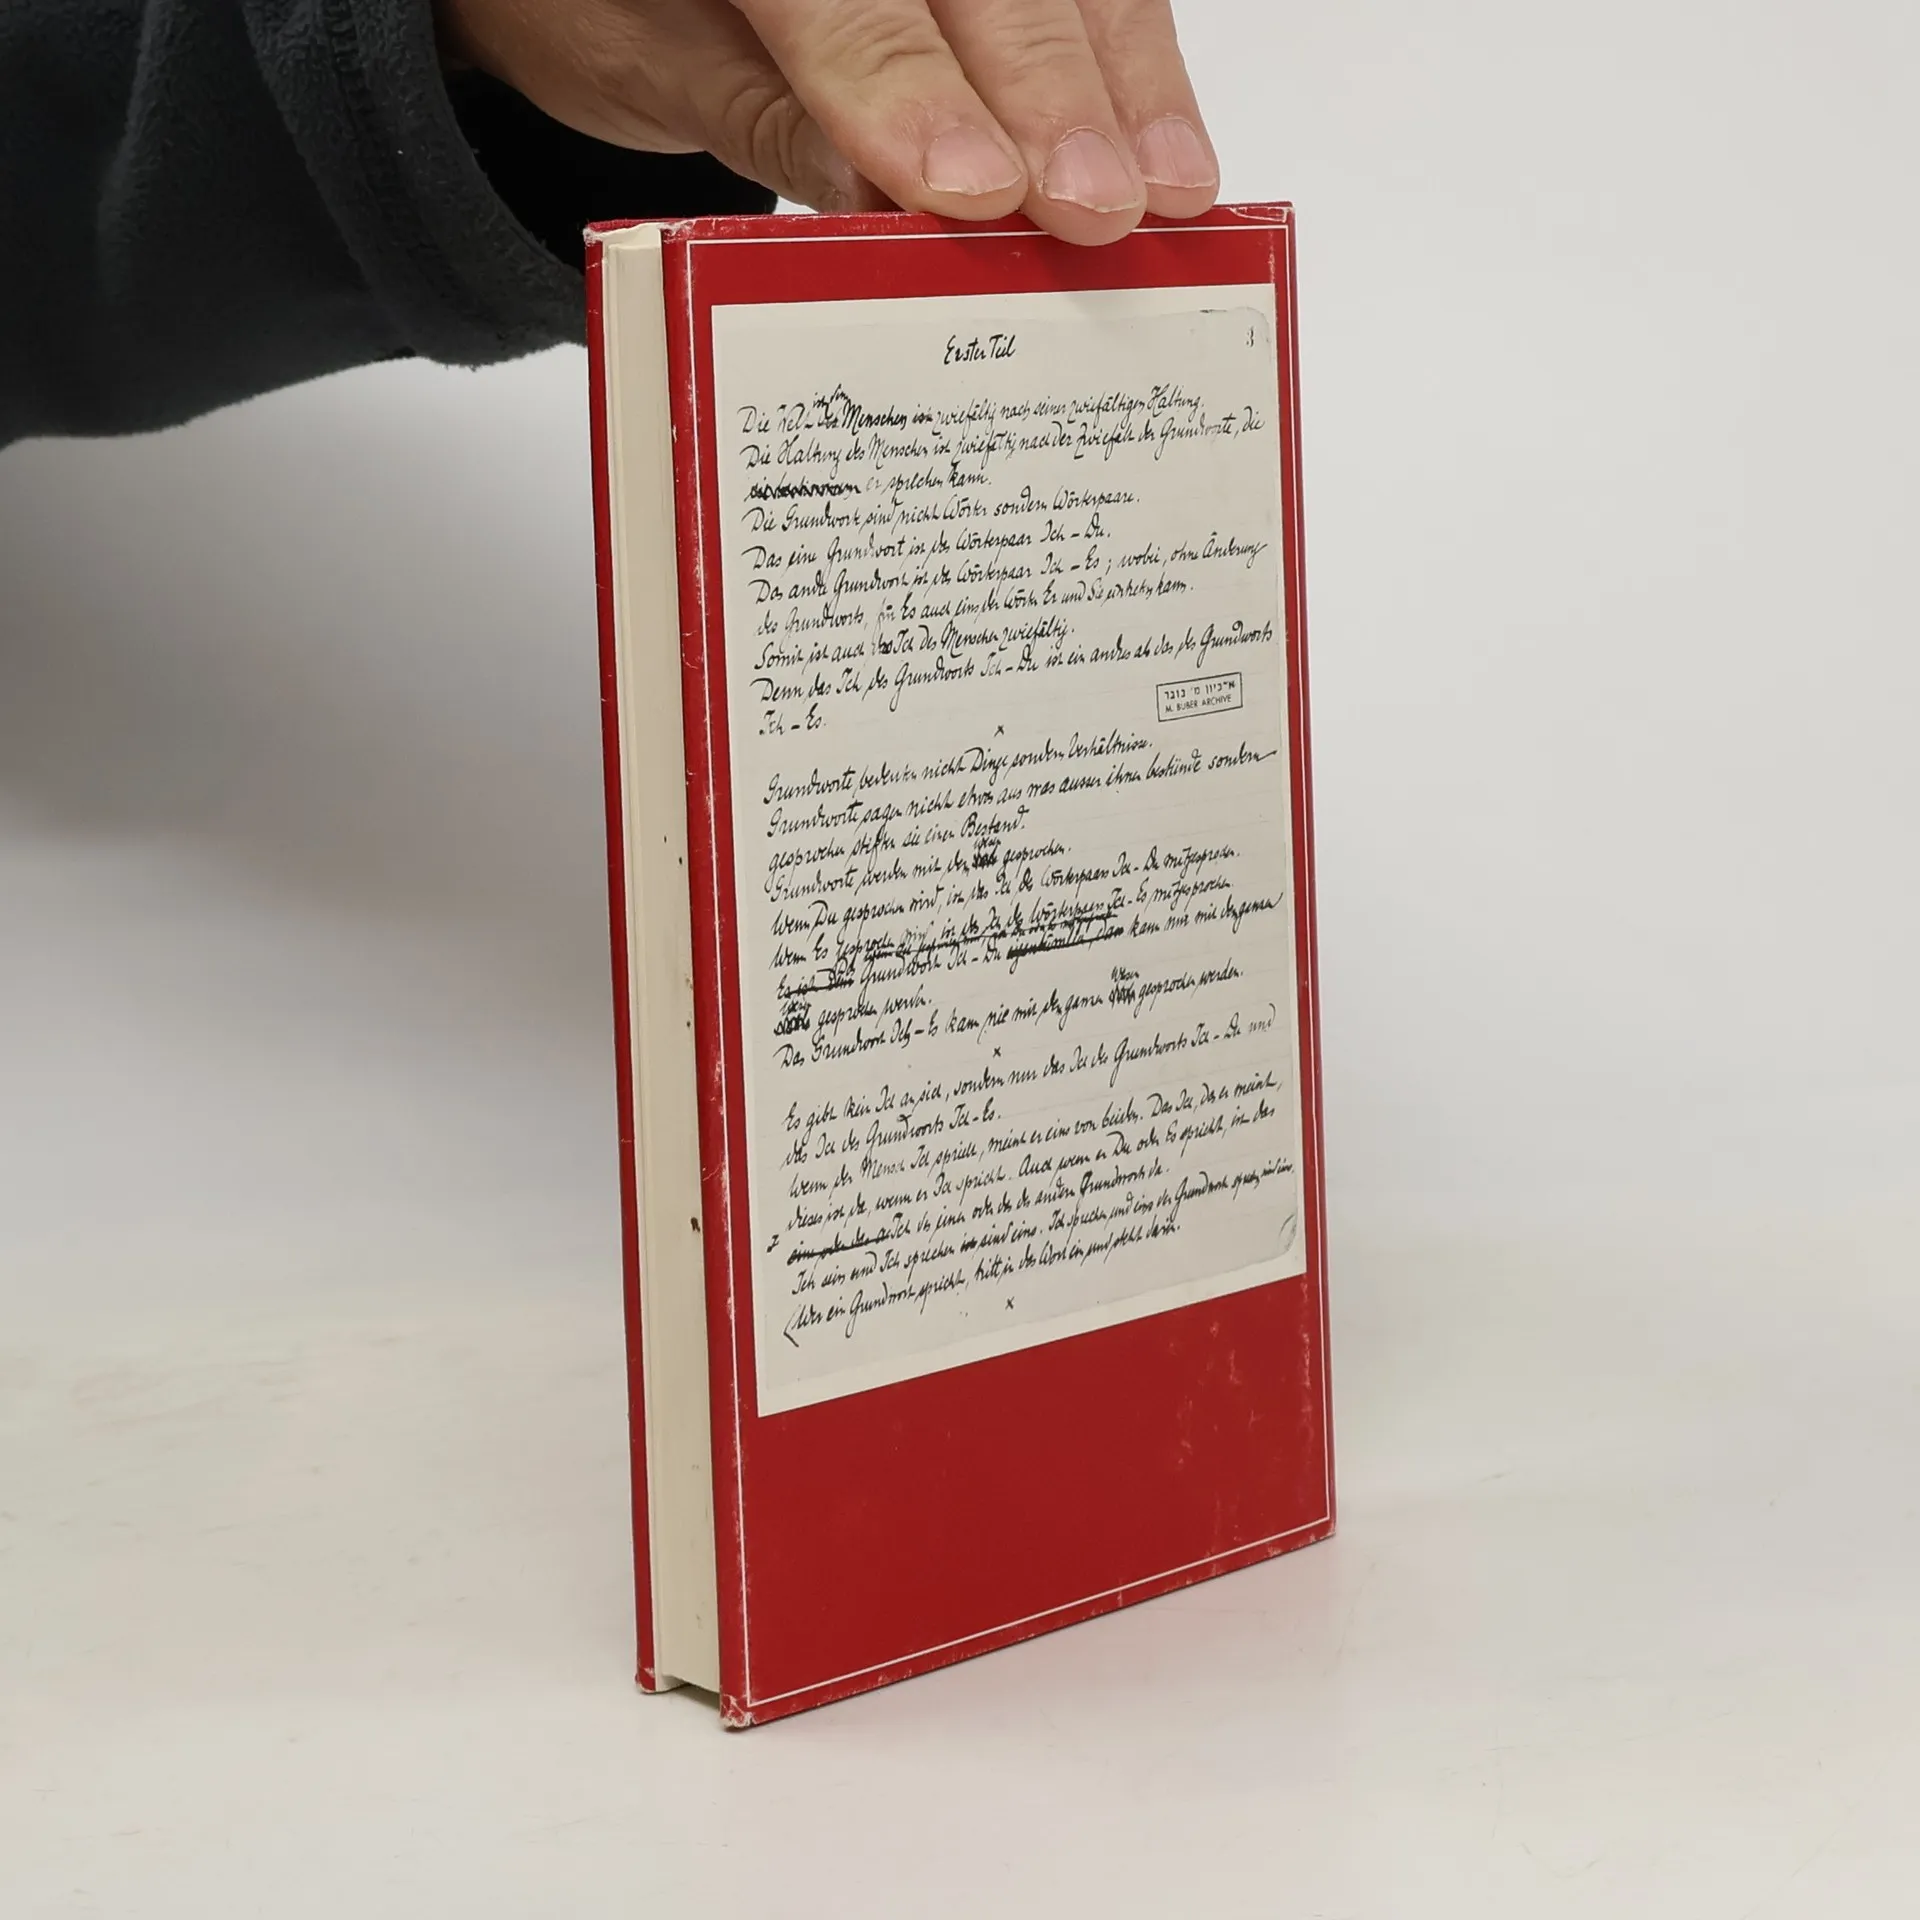 Erster Teil
3
Die Welt ist dem Menschen ist zwiefältig nach seiner zwiefältigen Haltung.
Die Haltung des Menschen ist zwiefältig nach der Zwiefalt der Grundworte, die
er sprechen kann.
Die Grundworte sind nicht Wörter sondern Wörterpaare.
Das eine Grundwort ist das Wörterpaar Ich – Du.
Das andre Grundwort ist das Wörterpaar Ich – Es; wobei, ohne Änderung
des Grundworts, für Es auch eins der Wörter Er und Sie eintreten kann.
Somit ist auch das Ich des Menschen zwiefältig.
Denn das Ich des Grundworts Ich – Du ist ein andres als das des Grundworts
Ich – Es.
ארכיון מ' בובר
M. BUBER ARCHIVE
x
Grundworte bedeuten nicht Dinge sondern Verhältnisse.
Grundworte sagen nicht etwas aus was ausser ihnen bestünde sondern
gesprochen stiften sie einen Bestand.
Grundworte werden mit dem Wesen gesprochen.
Wenn Du gesprochen wird, ist das Ich des Wörterpaars Ich – Du mitgesprochen.
Wenn Es gesprochen wird, ist das Ich des Wörterpaars Ich – Es mitgesprochen.
Es ist dem Das Grundwort Ich – Du kann nur mit dem ganzen
Wesen gesprochen werden.
Das Grundwort Ich – Es kann nie mit dem ganzen Wesen gesprochen werden.
x
Es gibt kein Ich an sich, sondern nur das Ich des Grundworts Ich – Du und
das Ich des Grundworts Ich – Es.
Wenn der Mensch Ich spricht, meint er eins von beiden. Das Ich, das er meint,
dieses ist da, wenn er Ich spricht. Auch wenn er Du oder Es spricht, ist das
eine oder das Ich des einen oder das des andern Grundworts da.
Ich sein und Ich sprechen ist sind eins. Ich sprechen und eins der Grundworte sprechen sind eins.
Wer ein Grundwort spricht, tritt in das Wort ein und steht darin.
x